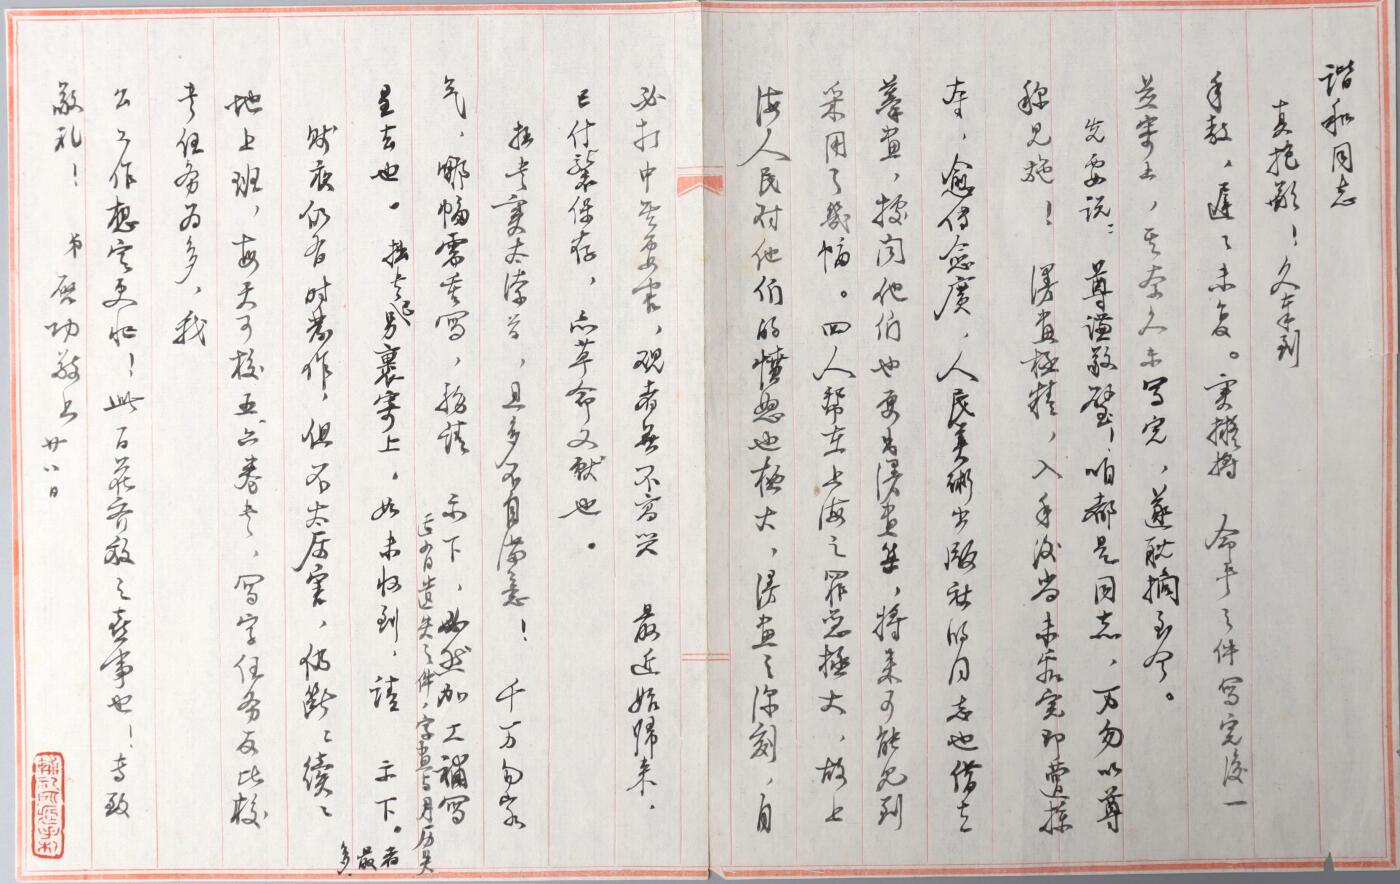 谐和同志
真抱歉！久奉到
手教，迟迟未复。实拟将 命书之件写完后一
并寄上，其奈久未写完，遂耽搁至今。
先要说：尊谦敬璧，咱都是同志，万勿以尊
称见施！ 漫画极精，入手后尚未看完即遭抢
夺，愈传愈广，人民美术出版社的同志也借去
摹画，据闻他们也要为漫画集，将来可能见到
采用了几幅。四人帮在上海之罪恶极大，故上
海人民对他们的愤怒也极大，漫画之深刻，自
必打中其要害，观者无不高兴 最近始归来，
已付装保存，亦革命文献也。
拙书实太潦草，且多不自满意！ 千万勿客
气，哪幅需重写，务请 示下，必然加工补写
近有遗失之件，字画与月历失
者最多。
呈去也。拙书已另裹寄上。如未收到，请 示下。
贱疾仍有时发作，但不太厉害，仍断断续续
地上班，每天可校五六卷书，写字任务反比校
书任务为多，我
公工作想定更忙！此百花齐放之喜事也！专致
敬礼！ 弟启功敬上 廿八日